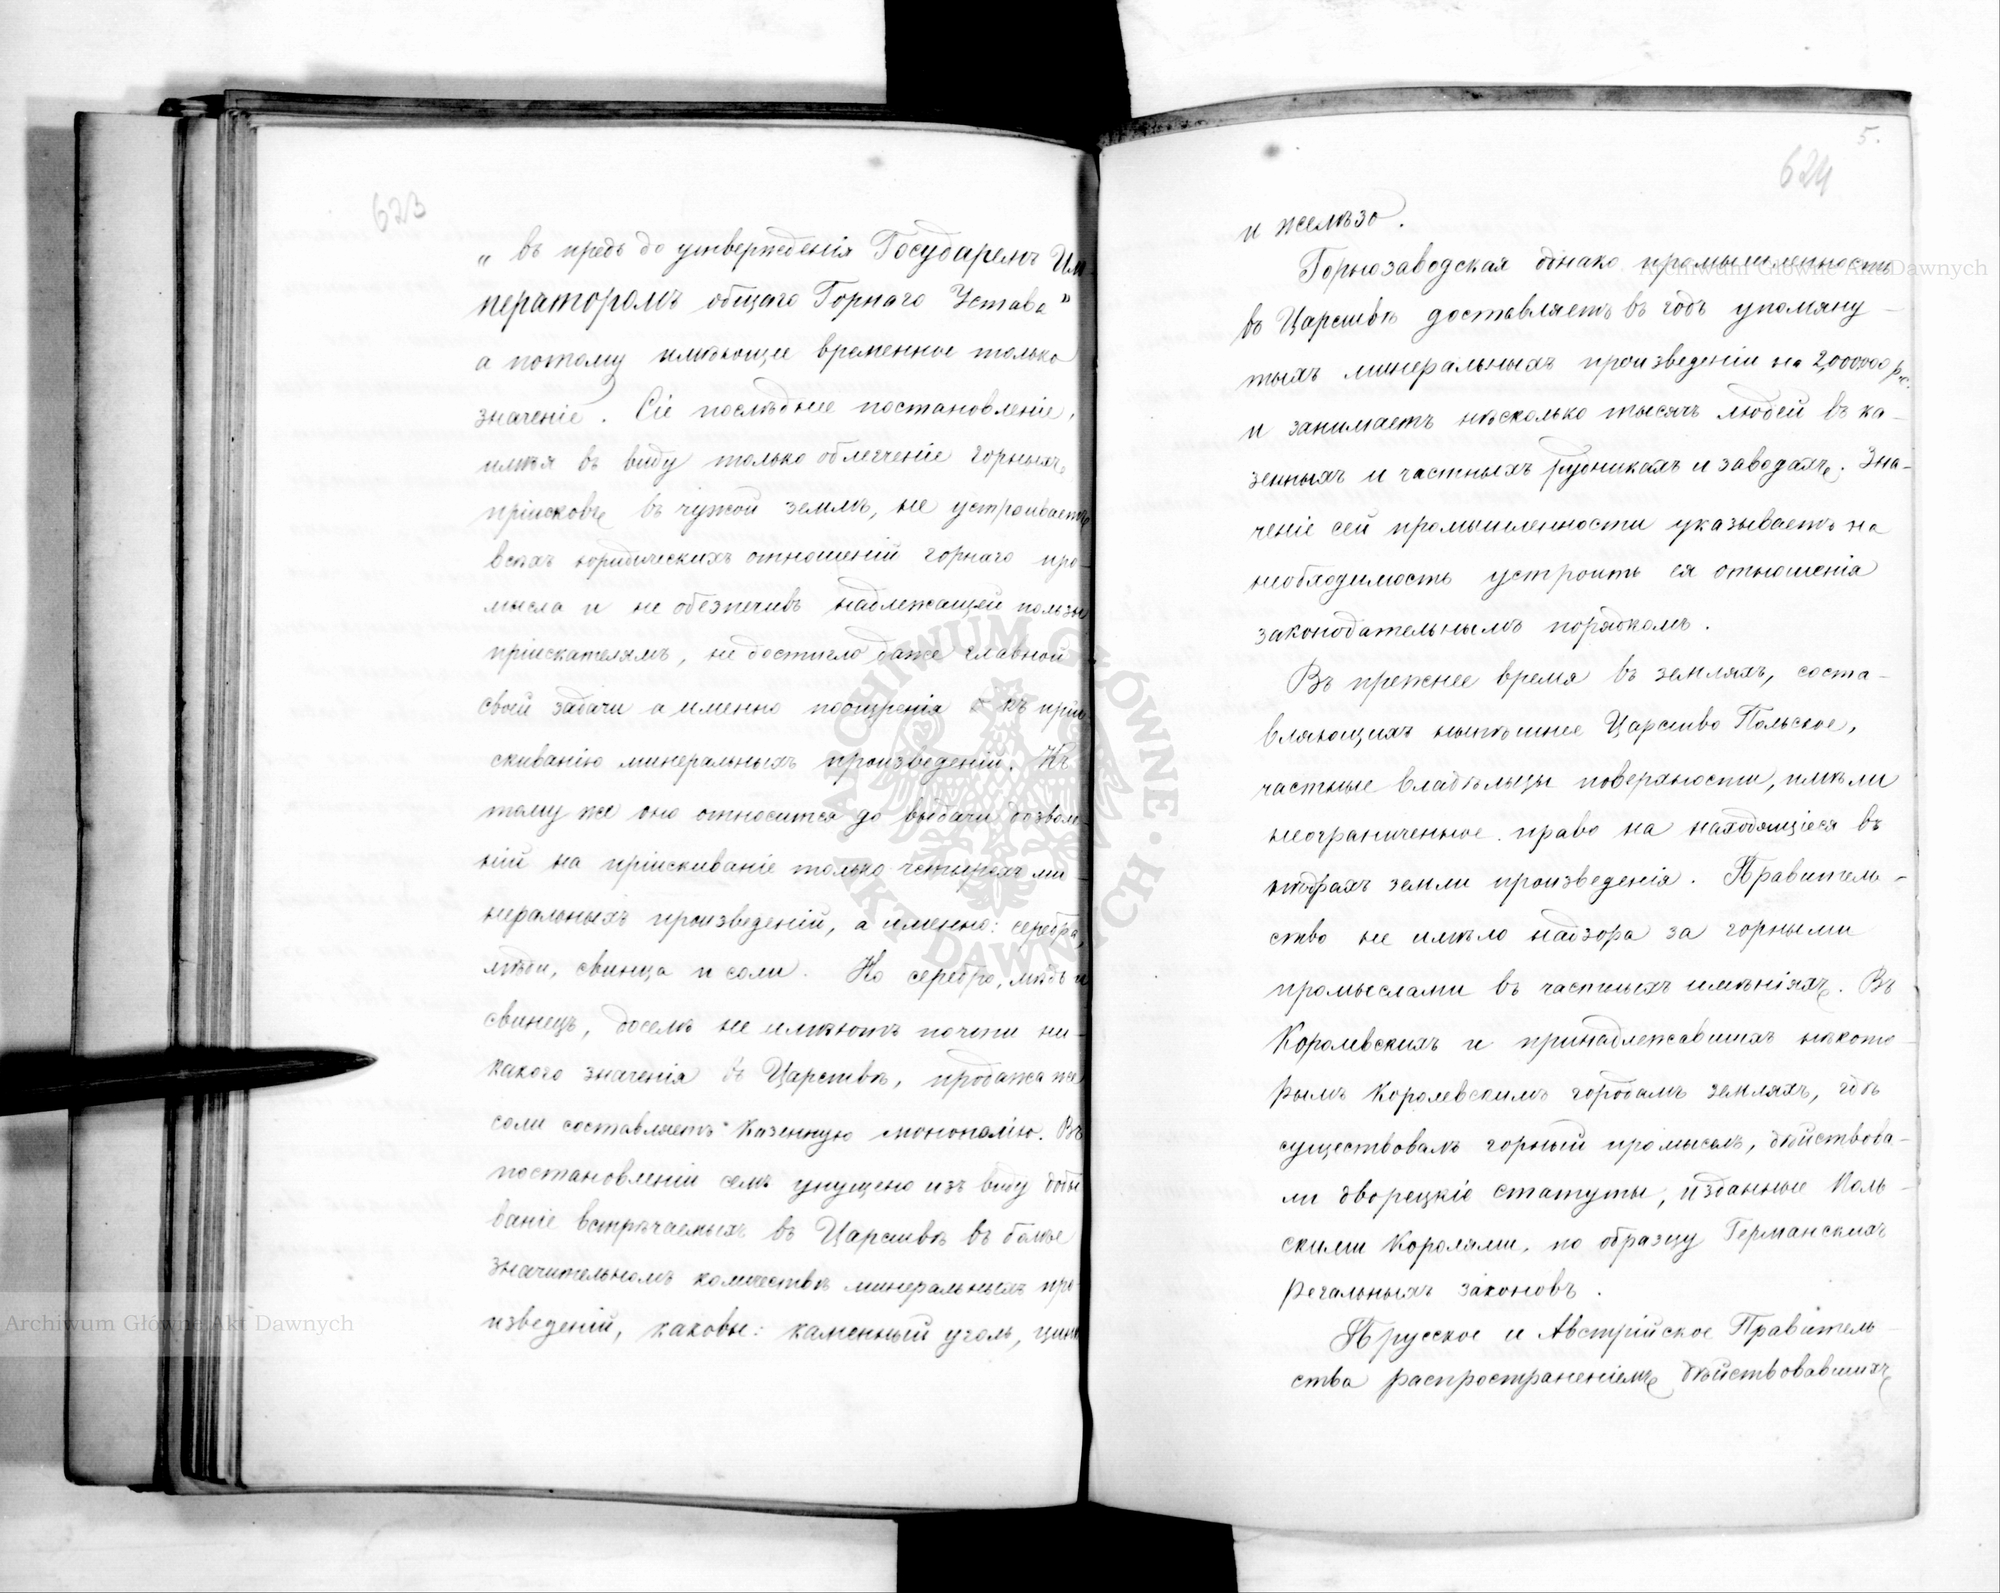 623
„ въ предь до утвержденія Государемъ Им-
ператоромъ общаго Горнаго Устава"
а потому имѣющее временное только
значеніе. Сіе послѣднее постановленіе,
имѣя въ виду только облегченіе горныхъ
пріисковъ въ чужой землѣ, не устроиваетъ
всѣхъ юридическихъ отношеній горнаго про-
мысла и не обезпечивъ надлежащей пользы
пріискателямъ, не достигло даже главной
своей задачи а именно поощренія къ прі-
искиванію минеральныхъ произведеній. Къ
тому же оно относится до выдачи дозволе-
ній на пріискиваніе только четырехъ ми-
неральныхъ произведеній, а именно: серебра,
мѣди, свинца и соли. Но серебро, мѣдь и
свинецъ, доселѣ не имѣютъ почти ни-
какого значенія въ Царствѣ, продажа же
соли составляетъ Казенную монополію. Въ
постановленіи семъ упущено изъ виду добы
ваніе встрѣчаемыхъ въ Царствѣ въ болѣе
значительномъ количествѣ минеральныхъ про-
изведеній, каковы: каменный уголь, цинк
5.
624
и желѣзо.
Горнозаводская однако промышленность
въ Царствѣ доставляетъ въ годъ упомяну-
тыхъ минеральныхъ произведеній на 2,000000 р.
и занимаетъ нѣсколько тысячъ людей въ ка-
зенныхъ и частныхъ рудникахъ и заводахъ. Зна-
ченіе сей промышленности указываетъ на
необходимость устроить ея отношенія
законодательнымъ порядкомъ.
Въ прежнее время въ земляхъ, соста-
вляющихъ нынѣшнее Царство Польское,
частные владѣльцы поверхности, имѣли
неограниченное право на находящіеся въ
нѣдрахъ земли произведенія. Правитель-
ство не имѣло надзора за горными
промыслами въ частныхъ имѣніяхъ. Въ
Королевскихъ и принадлежавшихъ нѣкото-
рымъ Королевскимъ городамъ земляхъ, гдѣ
существовалъ горный промыселъ, дѣйствова-
ли дворецкіе статуты, изданные Поль-
скими Королями, по образцу Германскихъ
Регальныхъ законовъ.
Прусское и Австрійское Правитель-
ства распространеніемъ дѣйствовавшихъ
Archiwum Główne Akt Dawnych
Archiwum Główne Akt Dawnych
ARCHIWUM GŁÓWNE AKT DAWNYCH